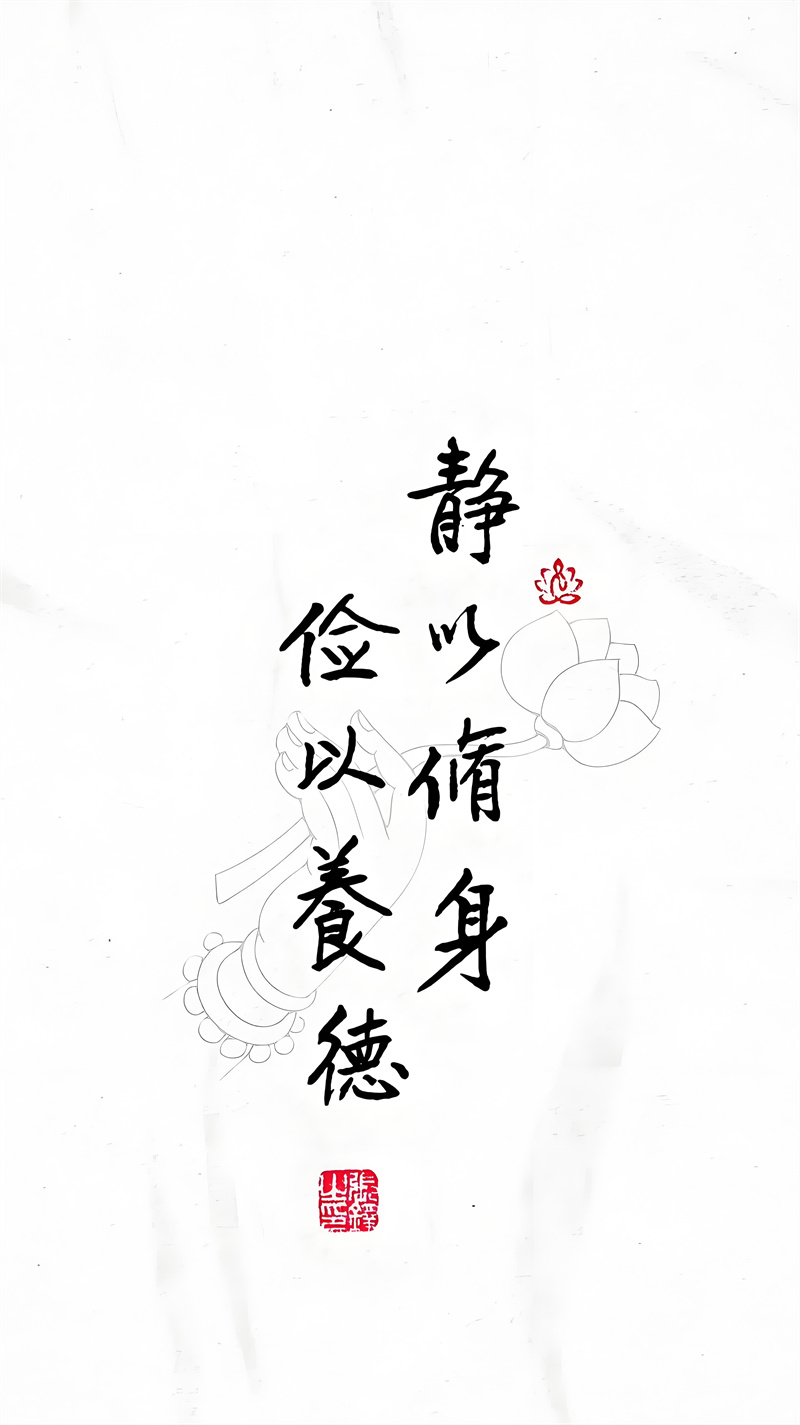 静以脩身
俭以養德